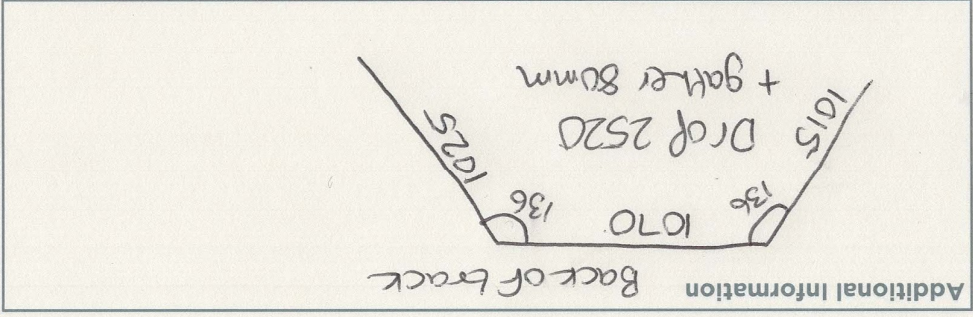 Additional Information
Back of track
136 1070 136
1015
1025
Drop 2520
+ gather 80mm